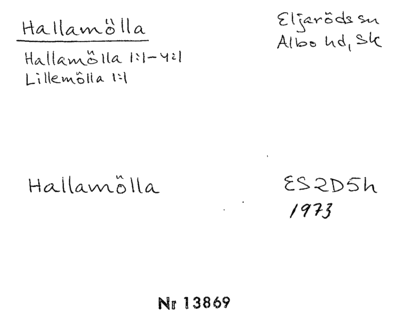 Hallamölla
Eljaröds sn
Hallamölla 1:1-4:1
Albo hd, Sk
Lillemölla 1:1
Hallamölla
ES2D5h
1973
Nr 13869